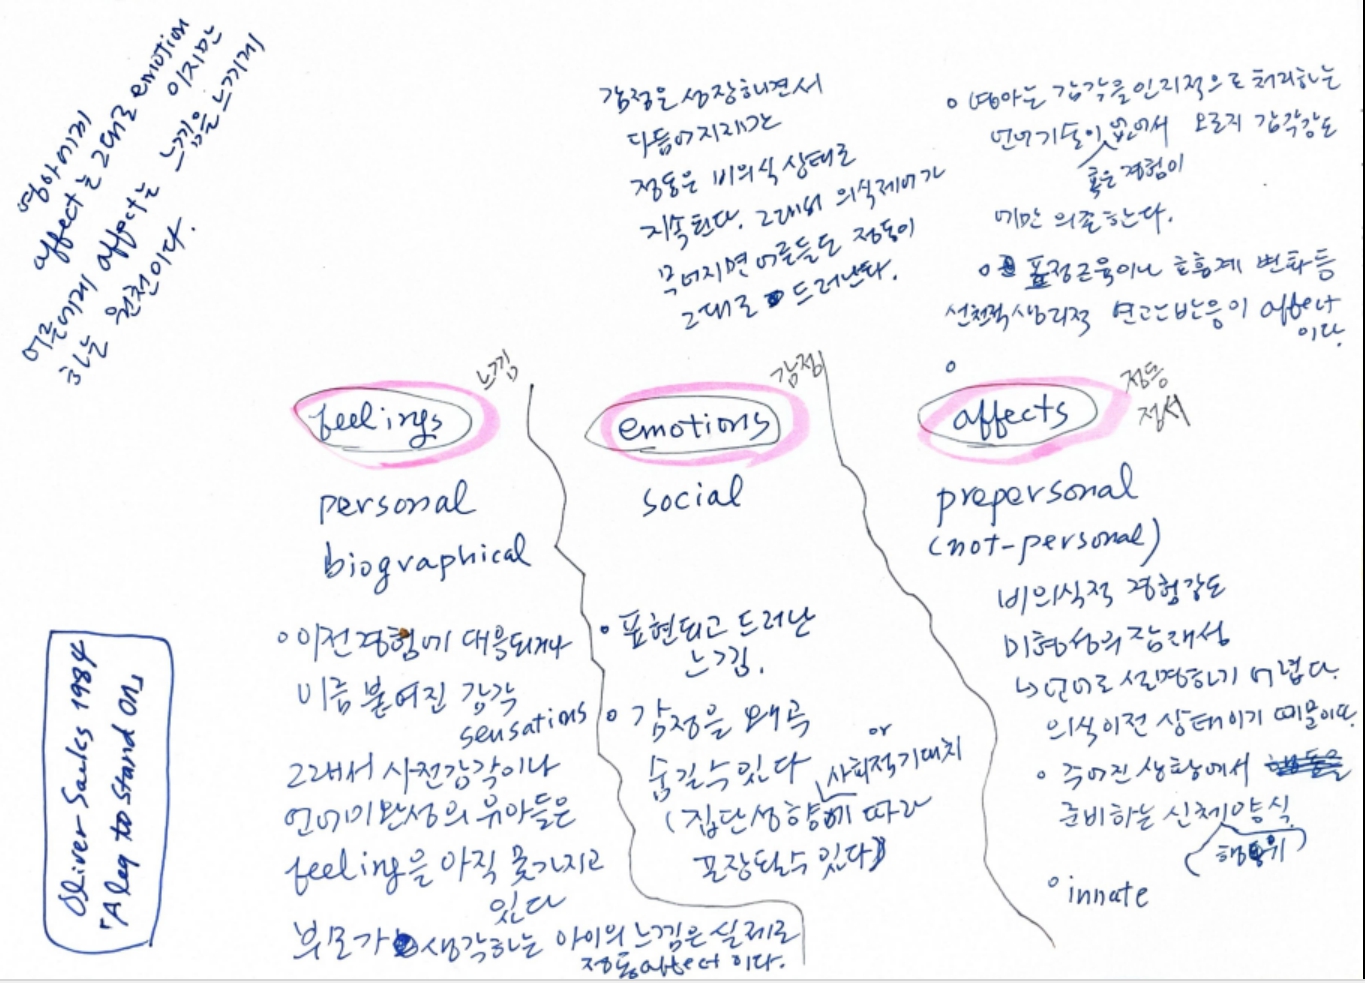 영아에게
affect는 그대로 emotion
이지만
어른에게 affect는 느낌을 느끼게
하는 원천이다.
감정은 성장하면서
다듬어지지만
정동은 비의식 상태로
지속된다. 그래서 의식제어가
무너지면 어른들도 정동이
그대로 드러난다.
◦ 영아는 감각을 인지적으로 처리하는
언어기술이 없어서 오로지 감각강도
혹은 경험이
에만 의존한다.
◦ 표정근육이나 호흡계 변화등
선천적 생리적 연관반응이 affect
이다.
◦
느낌
feelings
personal
biographical
◦ 이전경험에 대응되거나
이름 붙여진 감각
sensations
그래서 사전감각이나
언어미완성의 유아들은
feeling을 아직 못가지고
있다
부모가 생각하는 아이의 느낌은 실제로
정동affect이다.
감정
emotions
social
◦ 표현되고 드러난
느낌.
◦ 감정을 왜곡 or
숨길수있다 사회적기대치
(집단성향에 따라
포장될수 있다)
정동
정서
affects
prepersonal
(not-personal)
비의식적 경험강도
미형성의 잠재성
↳ 언어로 설명하기 어렵다.
의식이전 상태이기 때문이다.
◦ 주어진 상황에서
준비하는 신체양식
(행위)
◦ innate
Oliver Sacks 1984
「A leg to stand on」